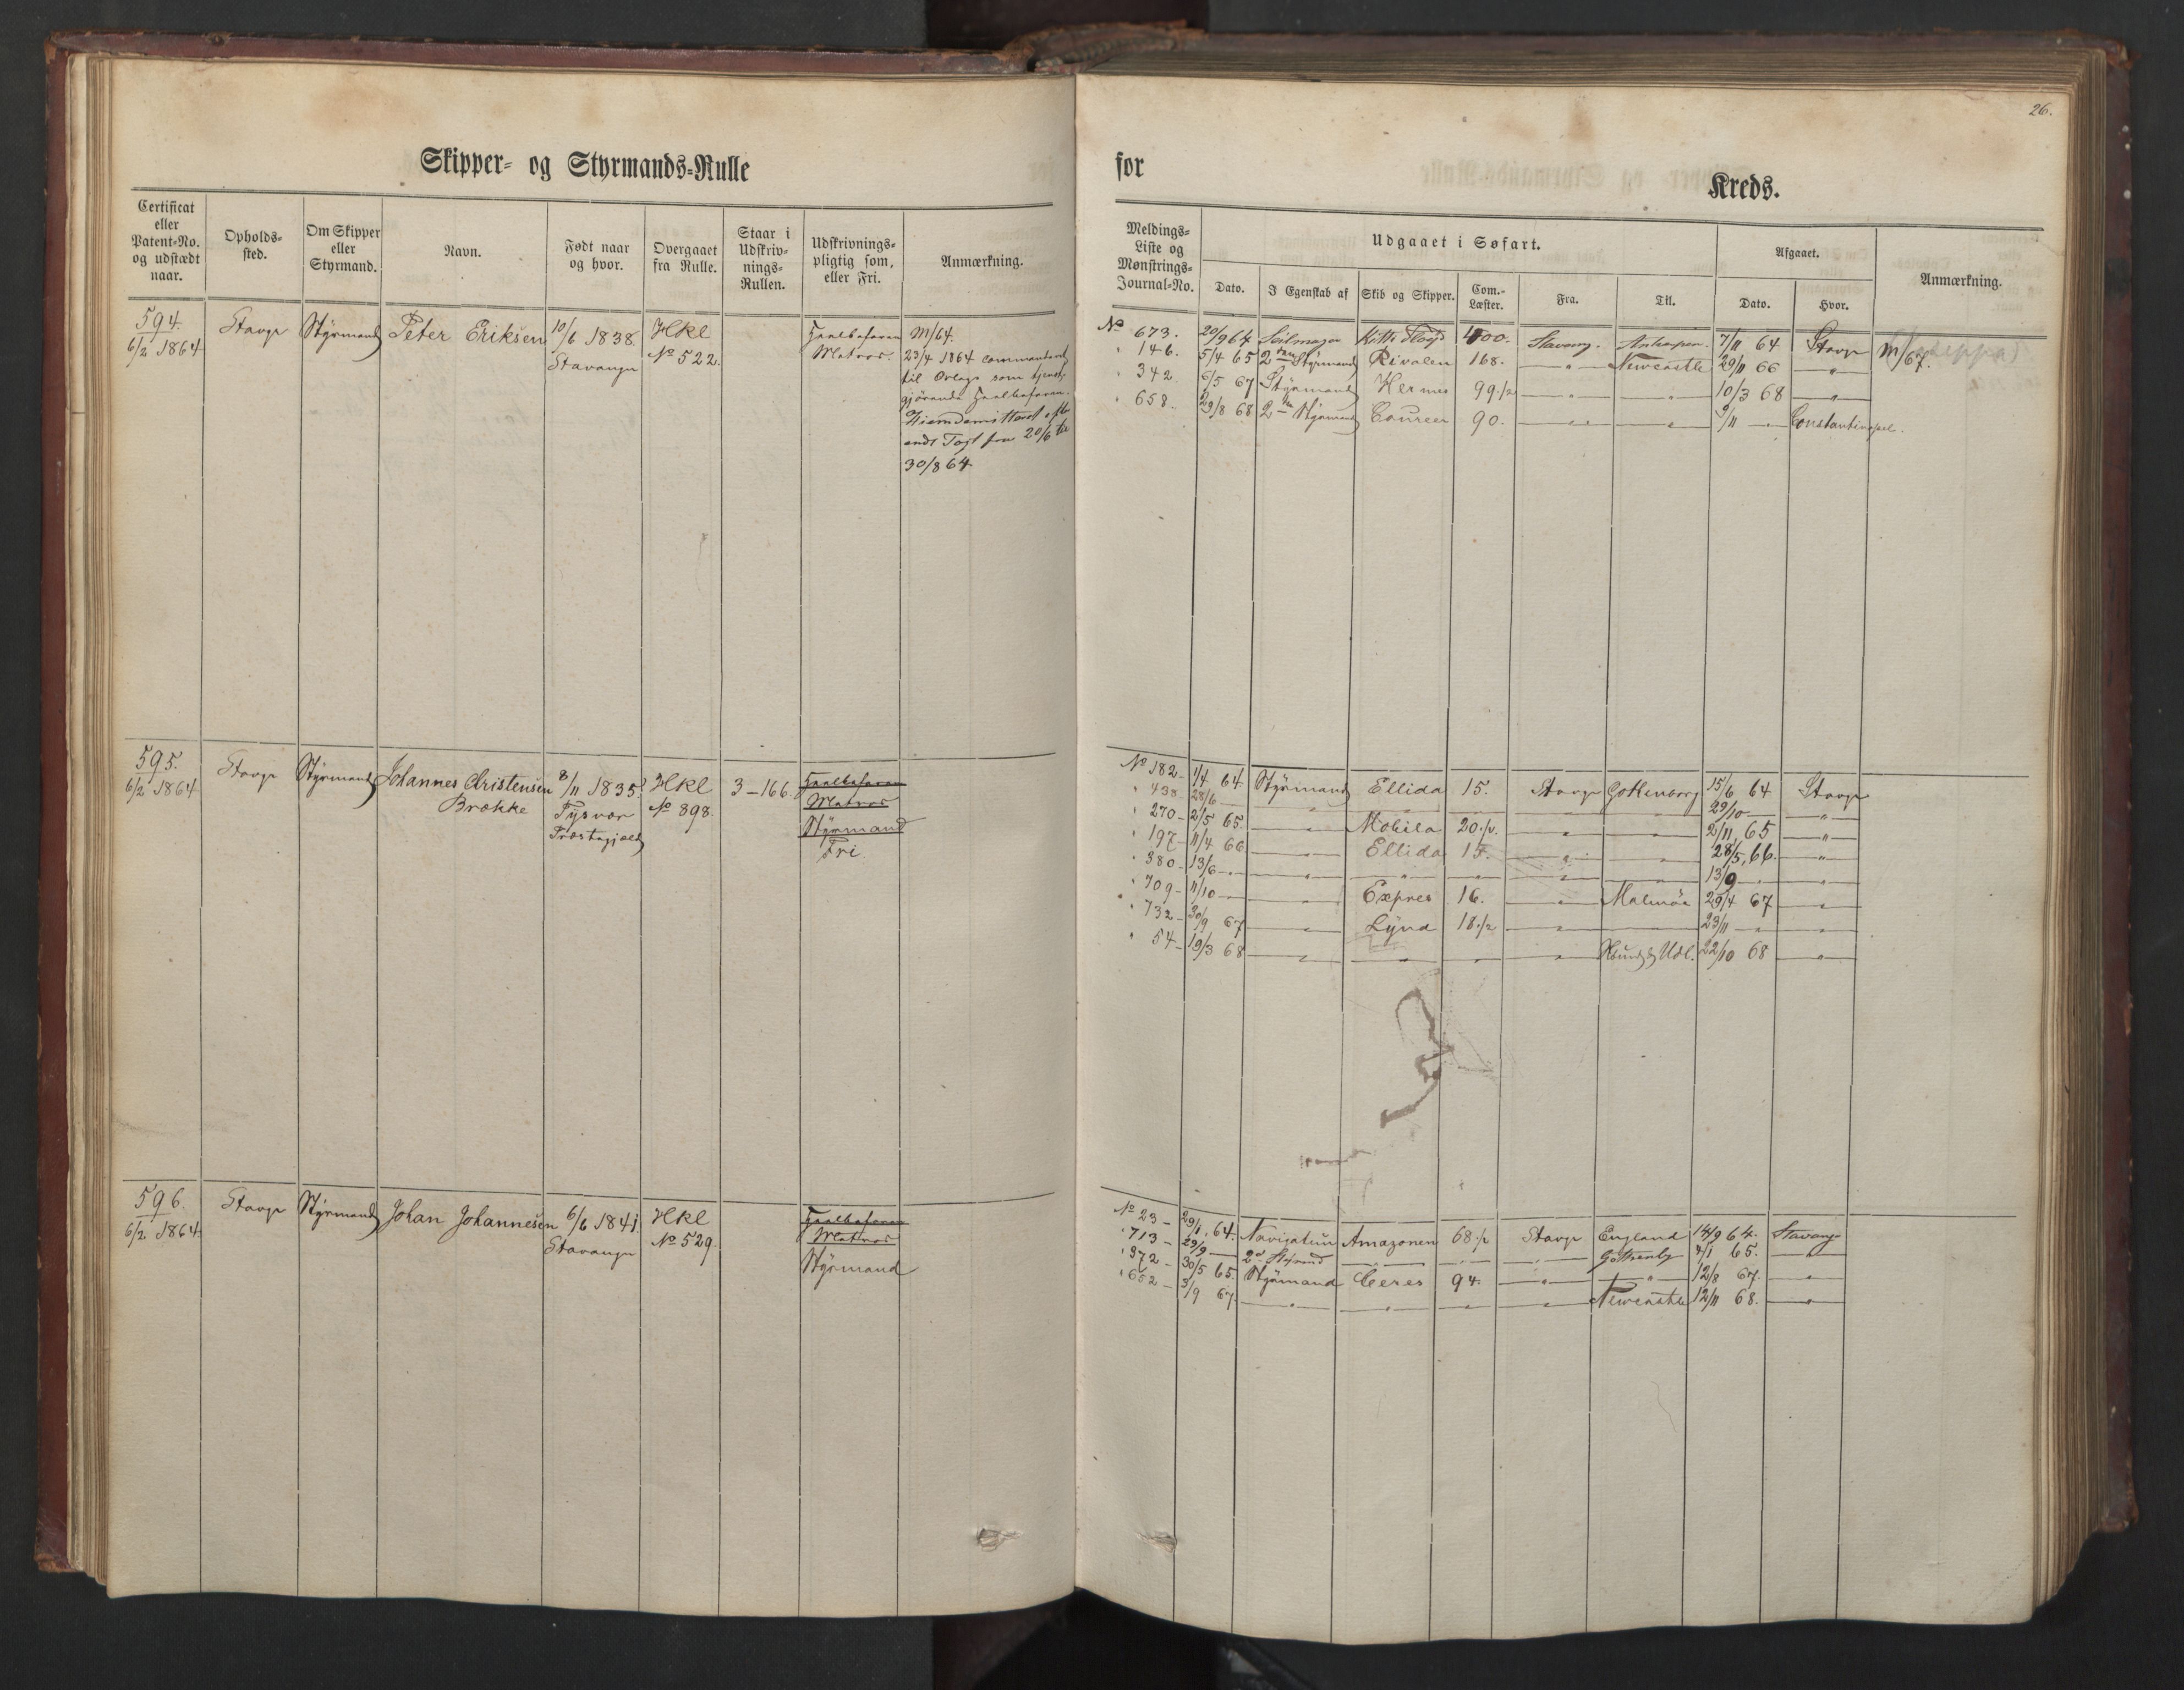 26.
Skipper- og Styrmands-Rulle
for
Kreds.
Certificat eller Patent-No. og udstædt naar.
Opholds-sted.
Om Skipper eller Styrmand.
Navn.
Født naar og hvor.
Overgaaet fra Rulle.
Staar i Udskriv-nings-Rullen.
Udskrivnings-pligtig som, eller Fri.
Anmærkning.
Meldings-Liste og Mønstrings-Journal-No.
Udgaaet i Søfart.
Dato.
I Egenskab af
Skib og Skipper.
Com.-Læster.
Fra.
Til.
Afgaaet.
Dato.
Hvor.
Anmærkning.
594. Stavgr Styrmand Peter Eriksen 10/6 1838. Hkl
6/2 1864 Stavanger No 522.
Matros.
M/64.
23/4 1864
til Orlogs som
30/8 64
No 673. 20/9 64 400. Stavang. 7/11 64 Stavgr M/67.
" 146. 5/4 65 2den Styrmand Rivalen 168. — " — Newcastle 29/11 66 — " —
" 342 6/5 67 Styrmand Hermes 99 1/2 — " — — " — 10/3 68 — " —
" 658. 29/8 68 2den Styrmand 90. — " — — " — 9/11 — " — Constantinopel.
595. Stavgr Styrmand Johannes Christensen 8/11 1835. Hkl 3-166.
6/2 1864 Brække Tysvær No 898. Matros
Præstegjeld Styrmand
Fri.
No 182 - 1/4 64 Styrmand Ellida 15. Stavgr Gottenborg 15/6 64 Stavgr
" 438 - 28/6 — 29/10 — " —
" 270 - 2/5 65. — " — Mobila 20 1/2. — " — — " — 2/11, 65 — " —
" 197 - 11/4 66 — " — Ellida 15. — " — — " — 28/5, 66. — " —
" 380 - 13/6 — " — — " — 13/9 — " —
" 709 - 11/10 — " — Expres 16. — " — Malmöe 29/4 67 — " —
" 732 - 30/9 67 — " — Lyna 18 1/2 — " — 23/11 — " —
" 54 - 19/3 68 — " — — " — — " — 22/10 68 — " —
596. Stavgr Styrmand Johan Johannesen 6/6 1841. Hkl
6/2 1864 Stavanger No 529. Matros
Styrmand
No 23 - 29/1, 64. Amazonen 68 1/2 Stavgr England 14/9 64. Stavang
" 713 - 29/9 — 2d — " — — " — Gothenbg 4/1 65. — " —
" 372 - 30/5 65. Styrmand Ceres 94. — " — — " — 12/8 67. — " —
" 652 - 5/9 67. — " — — " — — " — — " — Newcastle 12/11 68. — " —